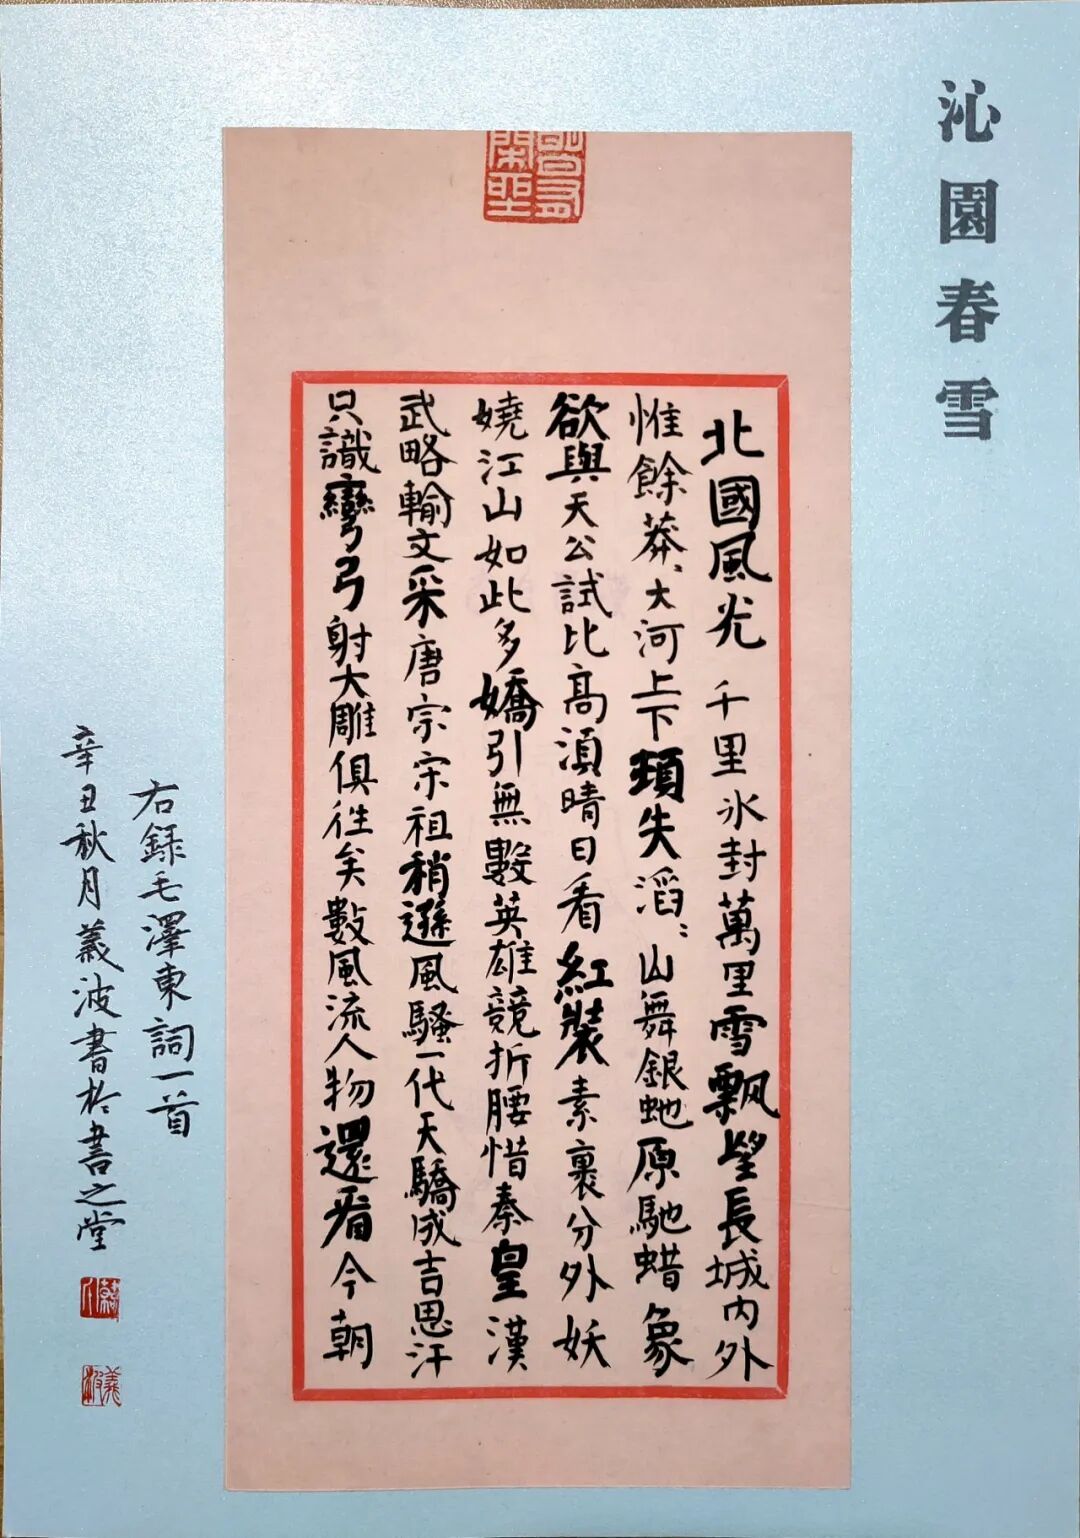 沁園春雪
北國風光千里氷封萬里雪飄望長城內外
惟餘莽〻大河上下頓失滔〻山舞銀虵原馳蜡象
欲與天公試比高湏晴日看紅裝素裹分外妖
嬈江山如此多嬌引無數英雄競折腰惜秦皇漢
武略輸文采唐宗宋祖稍遜風騷一代天驕成吉思汗
只識彎弓射大雕俱徃矣數風流人物還看今朝
右録毛澤東詞一首
辛丑秋月義波書於書之堂
義波